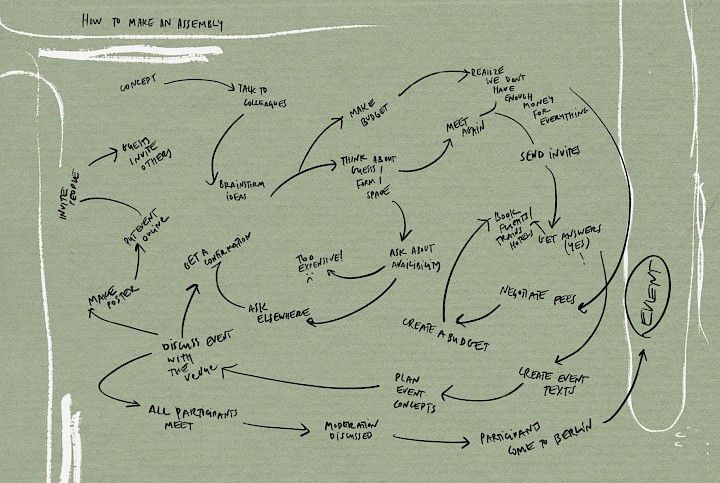 HOW TO MAKE AN ASSEMBLY
CONCEPT
TALK TO
COLLEAGUES
BRAINSTORM
IDEAS
MAKE
BUDGET
REALIZE
WE DON'T
HAVE
ENOUGH
MONEY
FOR
EVERYTHING
THINK ABOUT
GUESTS /
FORM /
SPACE
MEET
AGAIN
SEND INVITES
GET ANSWERS
(YES)
!
BOOK
FLIGHTS /
TRAINS
HOTELS
ASK ABOUT
AVAILIBILITY
TOO
EXPENSIVE!
:(
ASK
ELSEWHERE
GET A
CONFIRMATION
NEGOTIATE FEES
CREATE A BUDGET
CREATE EVENT
TEXTS
PLAN
EVENT
CONCEPTS
DISCUSS EVENT
WITH
THE
VENUE
MAKE
POSTER
PUT EVENT
ONLINE
INVITE
PEOPLE
GUESTS
INVITE
OTHERS
ALL PARTICIPANTS
MEET
MODERATION
DISCUSSED
PARTICIPANTS
COME TO BERLIN
EVENT